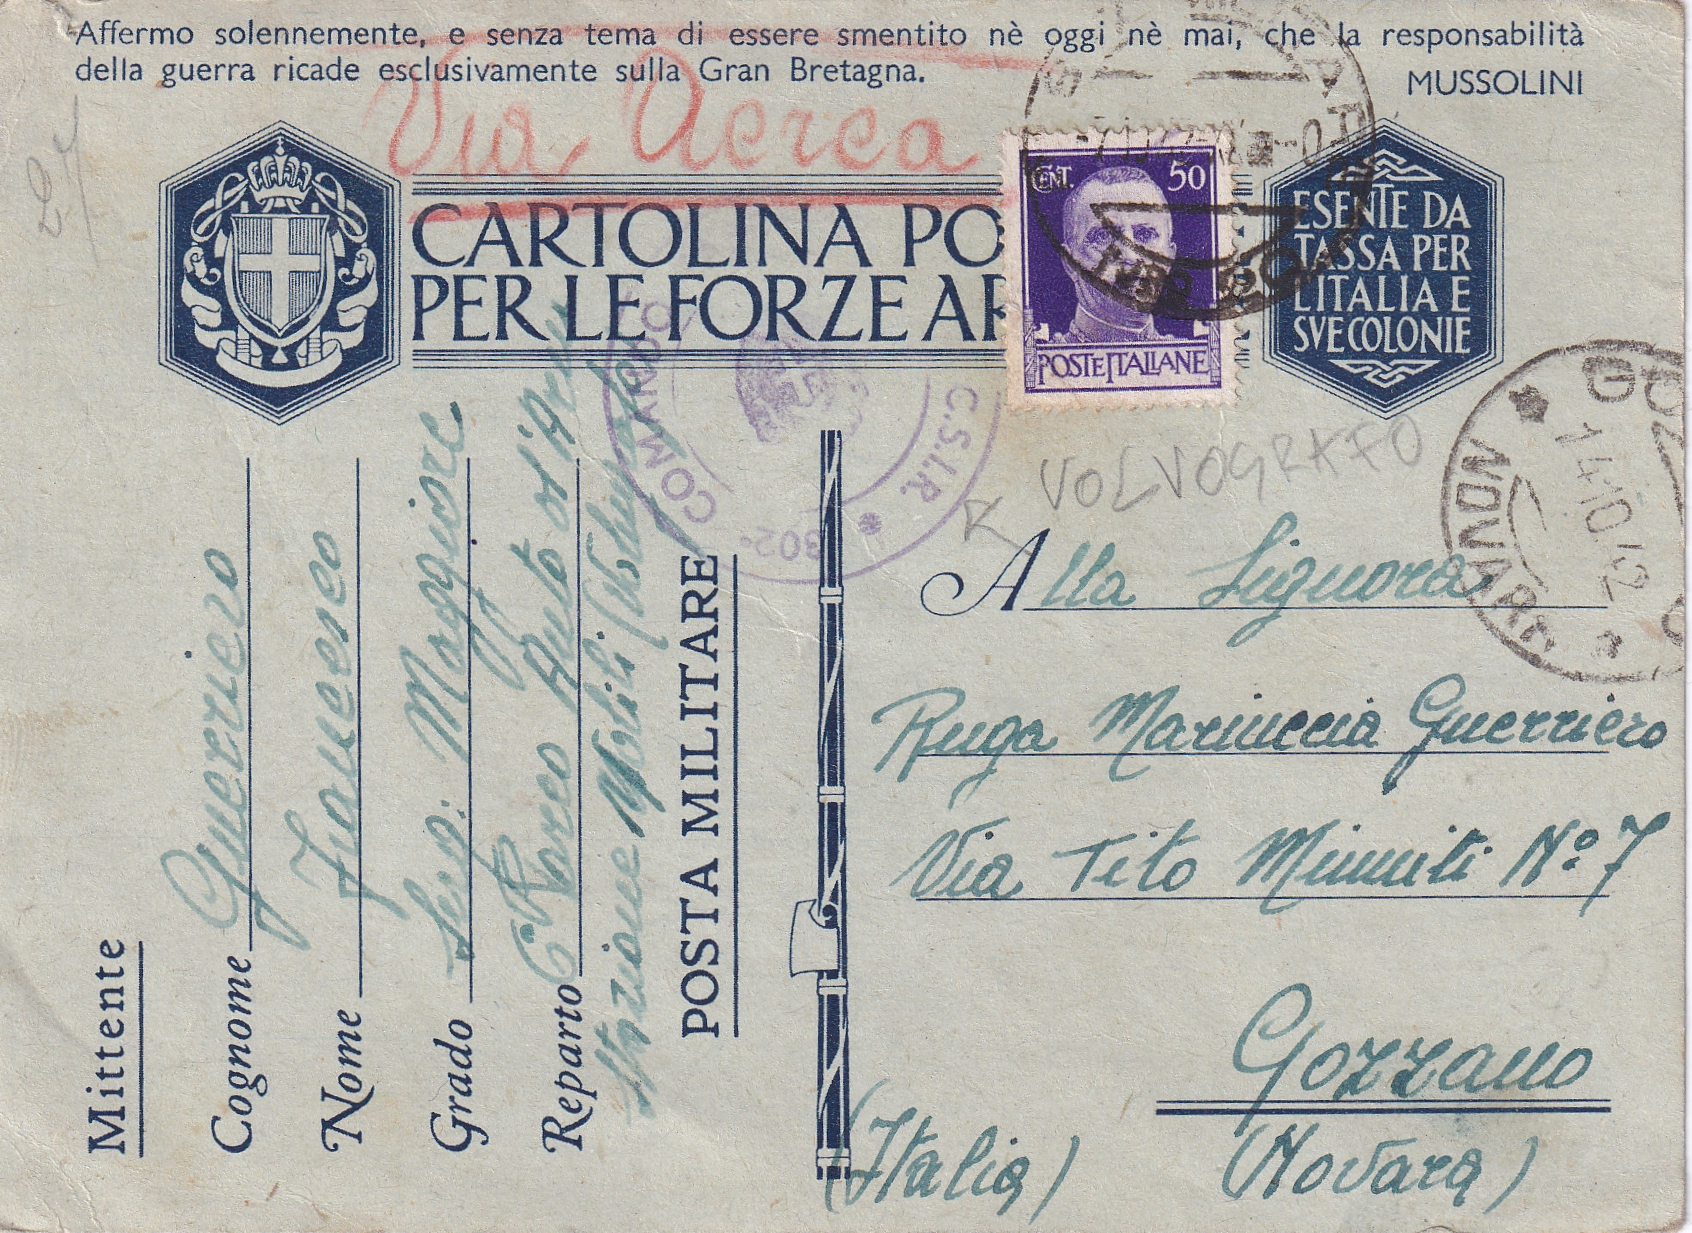 Affermo solennemente, e senza tema di essere smentito nè oggi nè mai, che la responsabilità
della guerra ricade esclusivamente sulla Gran Bretagna.
MUSSOLINI
Via Aerea
27
CARTOLINA PO
PER LE FORZE AR
CENT. 50
POSTE ITALIANE
ESENTE DA
TASSA PER
L'ITALIA E
SVE COLONIE
COMANDO
C.S.I.R.
302
VOLVOGRAFO
GOZZ
14.10.42
NOVARA
Mittente
Cognome Guerriero
Nome Francesco
Grado Serg. Maggiore
Reparto 6° Parco Auto d'
Stazione Mobili
POSTA MILITARE
Alla Signora
Ruga Mariuccia Guerriero
Via Tito Minniti Nº 7
Gozzano
(Italia) (Novara)